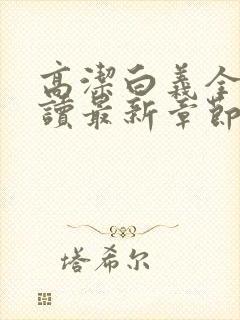 高潔白義全
讀最新章節
塔希尔